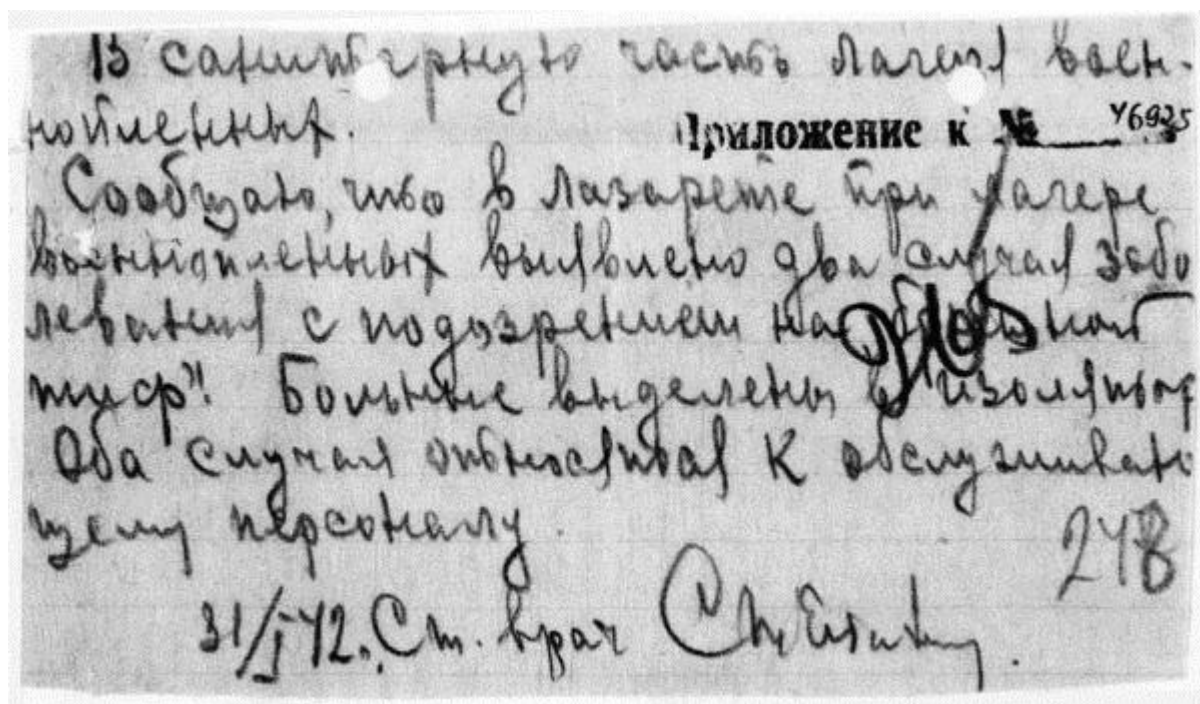 В санитарную часть Лагеря воен-
нопленных.
Приложение к № 46925
Сообщаю, что в лазарете при лагере
военнопленных выявлено два случая забо
левания с подозрением на брюшной
тиф". Больные выделены в изолятор
Оба случая относятся к обслуживаю
щему персоналу.
248
31/I 42. Ст. врач